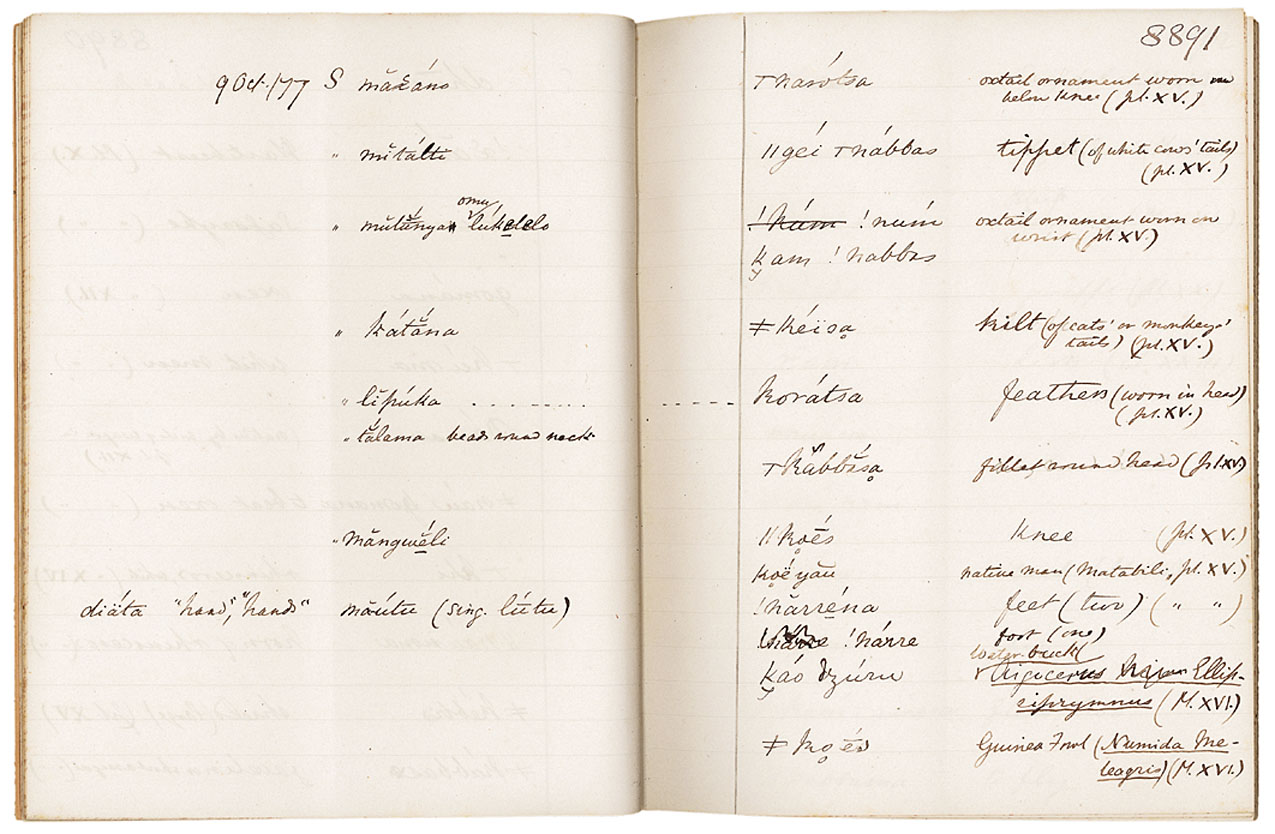 8891
9 Oct./79 S măkáno
" mĭtálti
omu
" mŭtắnya lúkelelo
" kátắna
" lĭpúka . . . . . . . .
" tălama beads round neck
" măngwéli
diáta "hand," "hands" māútu (sing. lútu)
⊤narótsa oxtail ornament worn
below knee (pl. XV.)
ǁgéi ⊤nábbas tippet (of white cows' tails)
(pl. XV.)
!núm !num oxtail ornament worn on
wrist (pl. XV.)
kam !nabbas
ǂkéïsa kilt (of cats' or monkeys'
tails) (pl. XV.)
- - - - - korátsa feathers (worn in head)
(pl. XV.)
⊤kắbbăsa fillet round head (pl. XV.)
ǁkōés knee (pl. XV.)
kŏĕyau native man (Matabili, pl. XV.)
!nărréna feet (two) ( " " )
!nárre foot (one)
water-buck
káo dzúru Aigocerus Ellip-
siprymnus (Pl. XVI.)
ǂkoēs Guinea Fowl (Numida Me-
leagris) (Pl. XVI.)